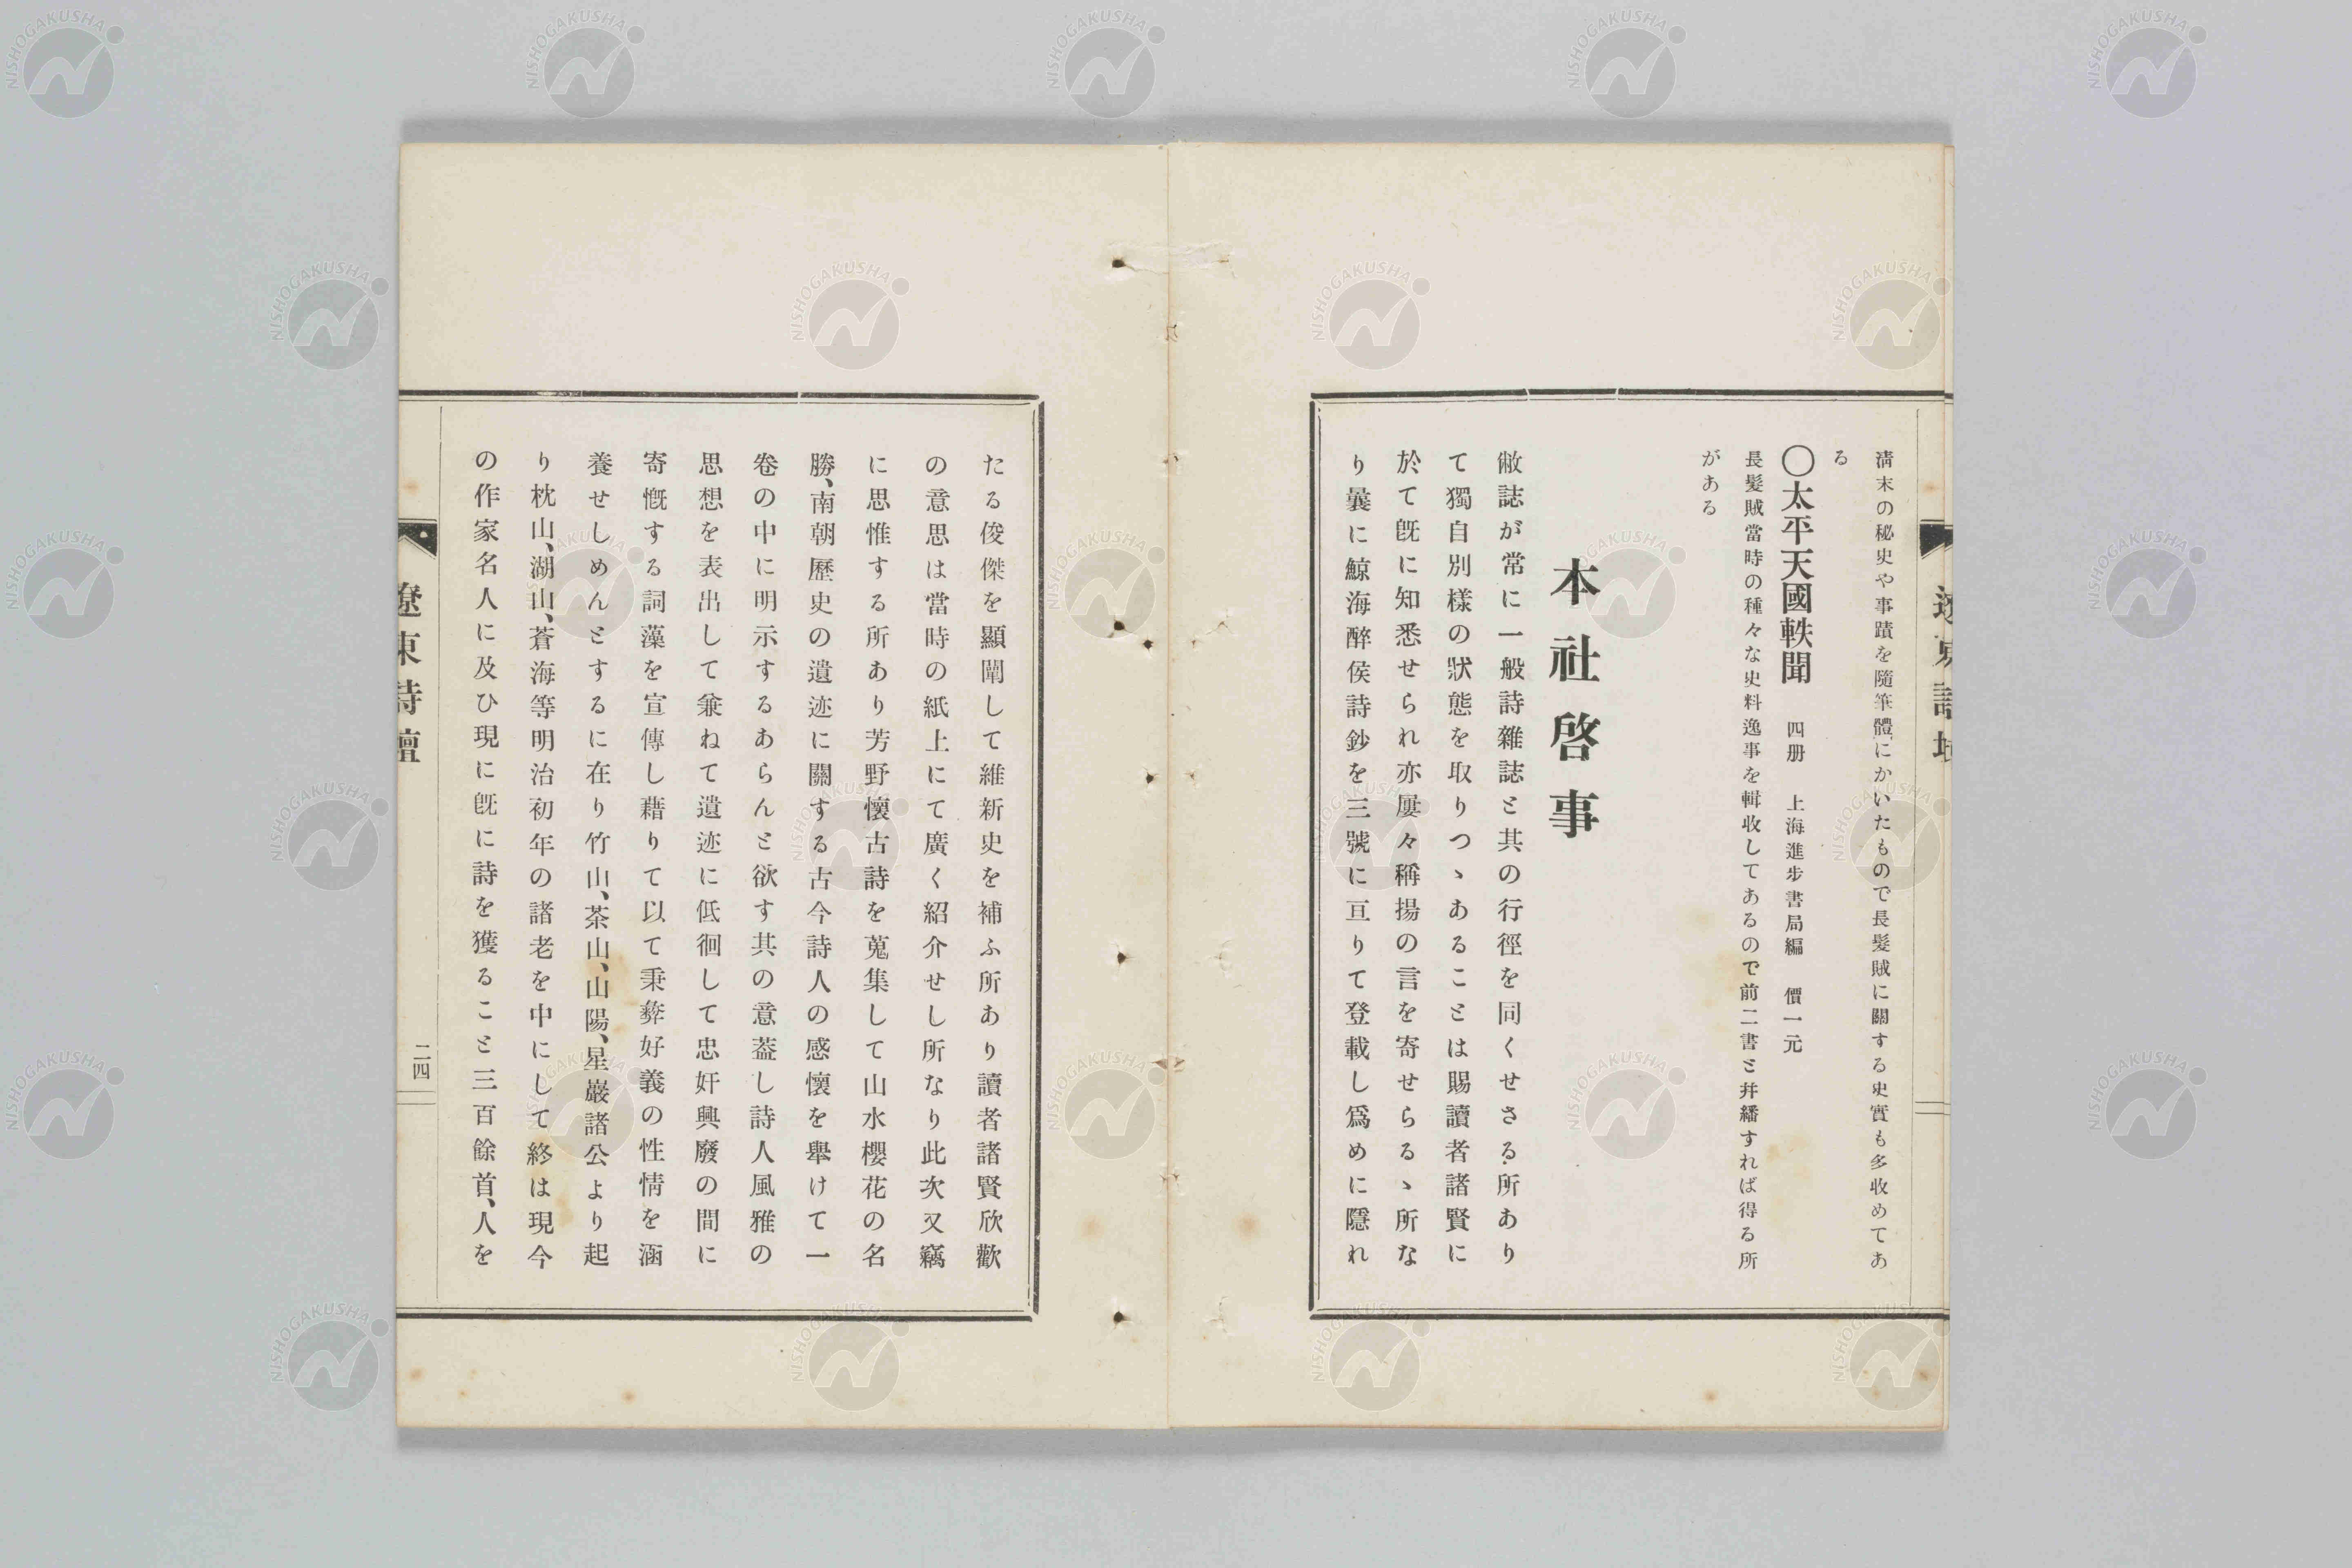 淸末の秘史や事蹟を隨筆體にかいたもので長髮賊に關する史實も多收めてあ
る
〇太平天國軼聞 四册 上海進步書局編 價一元
長髮賊當時の種々な史料逸事を輯收してあるので前二書と幷繙すれば得る所
がある
本社啓事
敝誌が常に一般詩雜誌と其の行徑を同くせさる所あり
て獨自別樣の狀態を取りつゝあることは賜讀者諸賢に
於て旣に知悉せられ亦屢々稱揚の言を寄せらるゝ所な
り曩に鯨海醉侯詩鈔を三號に亘りて登載し爲めに隱れ
たる俊傑を顯闡して維新史を補ふ所あり讀者諸賢欣歡
の意思は當時の紙上にて廣く紹介せし所なり此次又竊
に思惟する所あり芳野懷古詩を蒐集して山水櫻花の名
勝、南朝歷史の遺迹に關する古今詩人の感懷を擧けて一
卷の中に明示するあらんと欲す其の意葢し詩人風雅の
思想を表出して兼ねて遺迹に低徊して忠奸興廢の間に
寄慨する詞藻を宣傳し藉りて以て秉彜好義の性情を涵
養せしめんとするに在り竹山、茶山、山陽、星巖諸公より起
り枕山、湖山、蒼海等明治初年の諸老を中にして終は現今
の作家名人に及ひ現に旣に詩を獲ること三百餘首、人を
遼東詩壇
二四
NISHOGAKUSHA